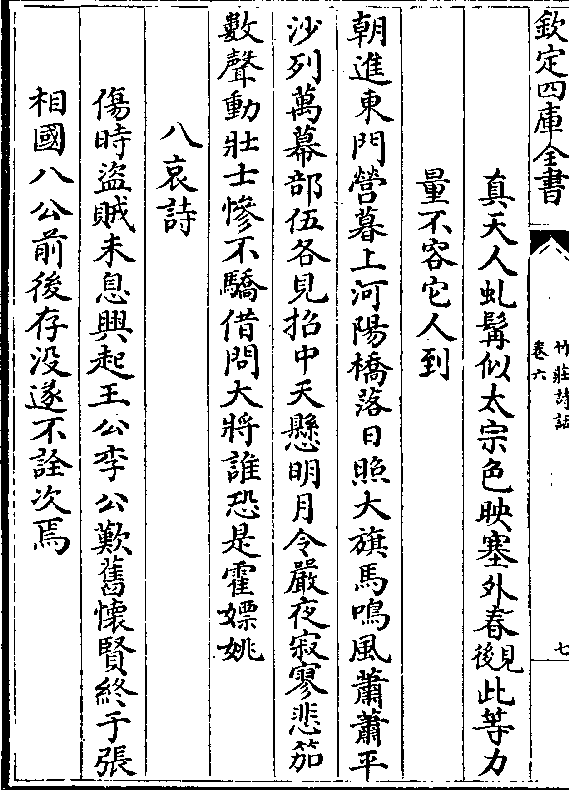 欽定四庫全書
竹莊詩話
卷六
七
真天人虬髯似太宗色映塞外春見後此等力
量不容它人到
朝進東門營暮上河陽橋落日照大旗馬鳴風蕭蕭平
沙列萬幕部伍各見招中天懸明月令嚴夜寂寥悲笳
數聲動壯士慘不驕借問大將誰恐是霍嫖姚
八哀詩
傷時盜賊未息興起王公李公歎舊懷賢終于張
相國八公前後存没遂不詮次焉